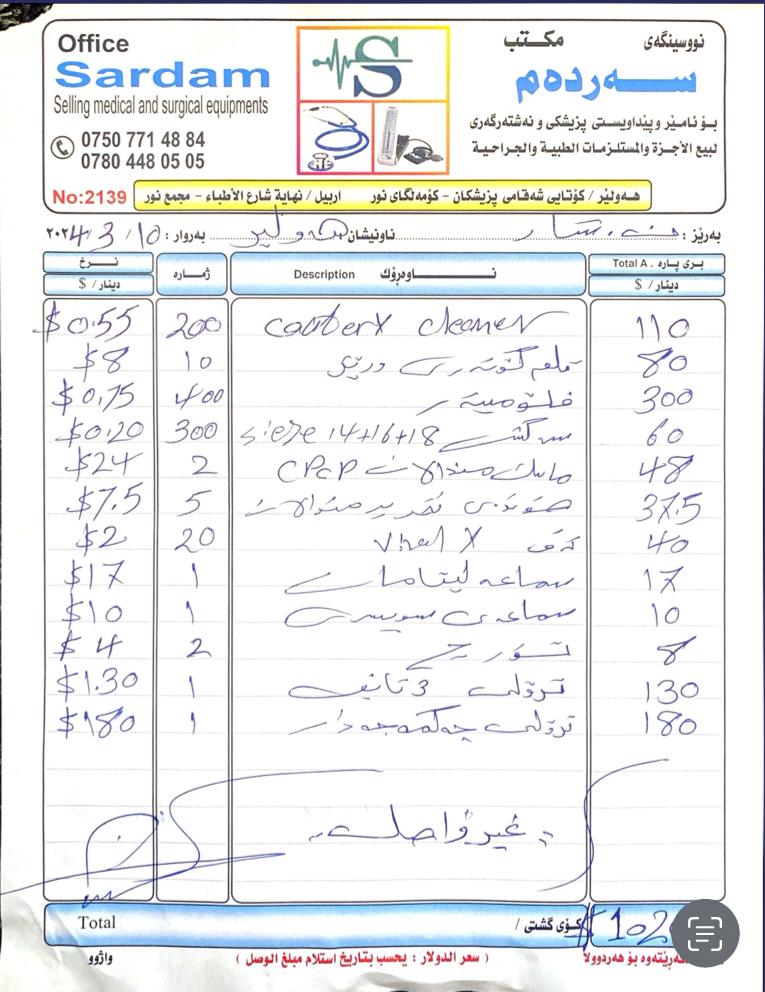 Office
Sardam
Selling medical and surgical equipments
0750 771 48 84
0780 448 05 05
S
نووسینگەی مکتب
سەردەم
بۆ ئامێر و پێداویستی پزیشکی و نەشتەرگەری
لبيع الأجزة والمستلزمات الطبية والجراحية
No:2139
هەولێر / کۆتایی شەقامی پزیشکان - کۆمەڵگای نور اربيل / نهاية شارع الأطباء - مجمع نور
بەڕێز : ناونیشان هەولێر بەروار : 10 / 3 / ٢٠٢4
نرخ ژمارە Description ناوەرۆك بری پارە . Total A
دینار / $ دینار / $
$0.55 200 cleaner 110
$8 10 قلم کۆتەری درێژ 80
$0.75 400 فلۆمیتەر 300
$0.20 300 14+16+18 60
$24 2 CPAP 48
$7.5 5 37.5
$2 20 40
$17 1 سماعە لیتمان 17
$10 1 سماعەی سویسری 10
$4 2 8
$1.30 1 ترۆلی 3 130
$180 1 ترۆلی چەکمەجەدار 180
غير واصل
Total کۆی گشتی / $102
واژوو ( سعر الدولار : يحسب بتاريخ استلام مبلغ الوصل ) بۆ هەردوولا